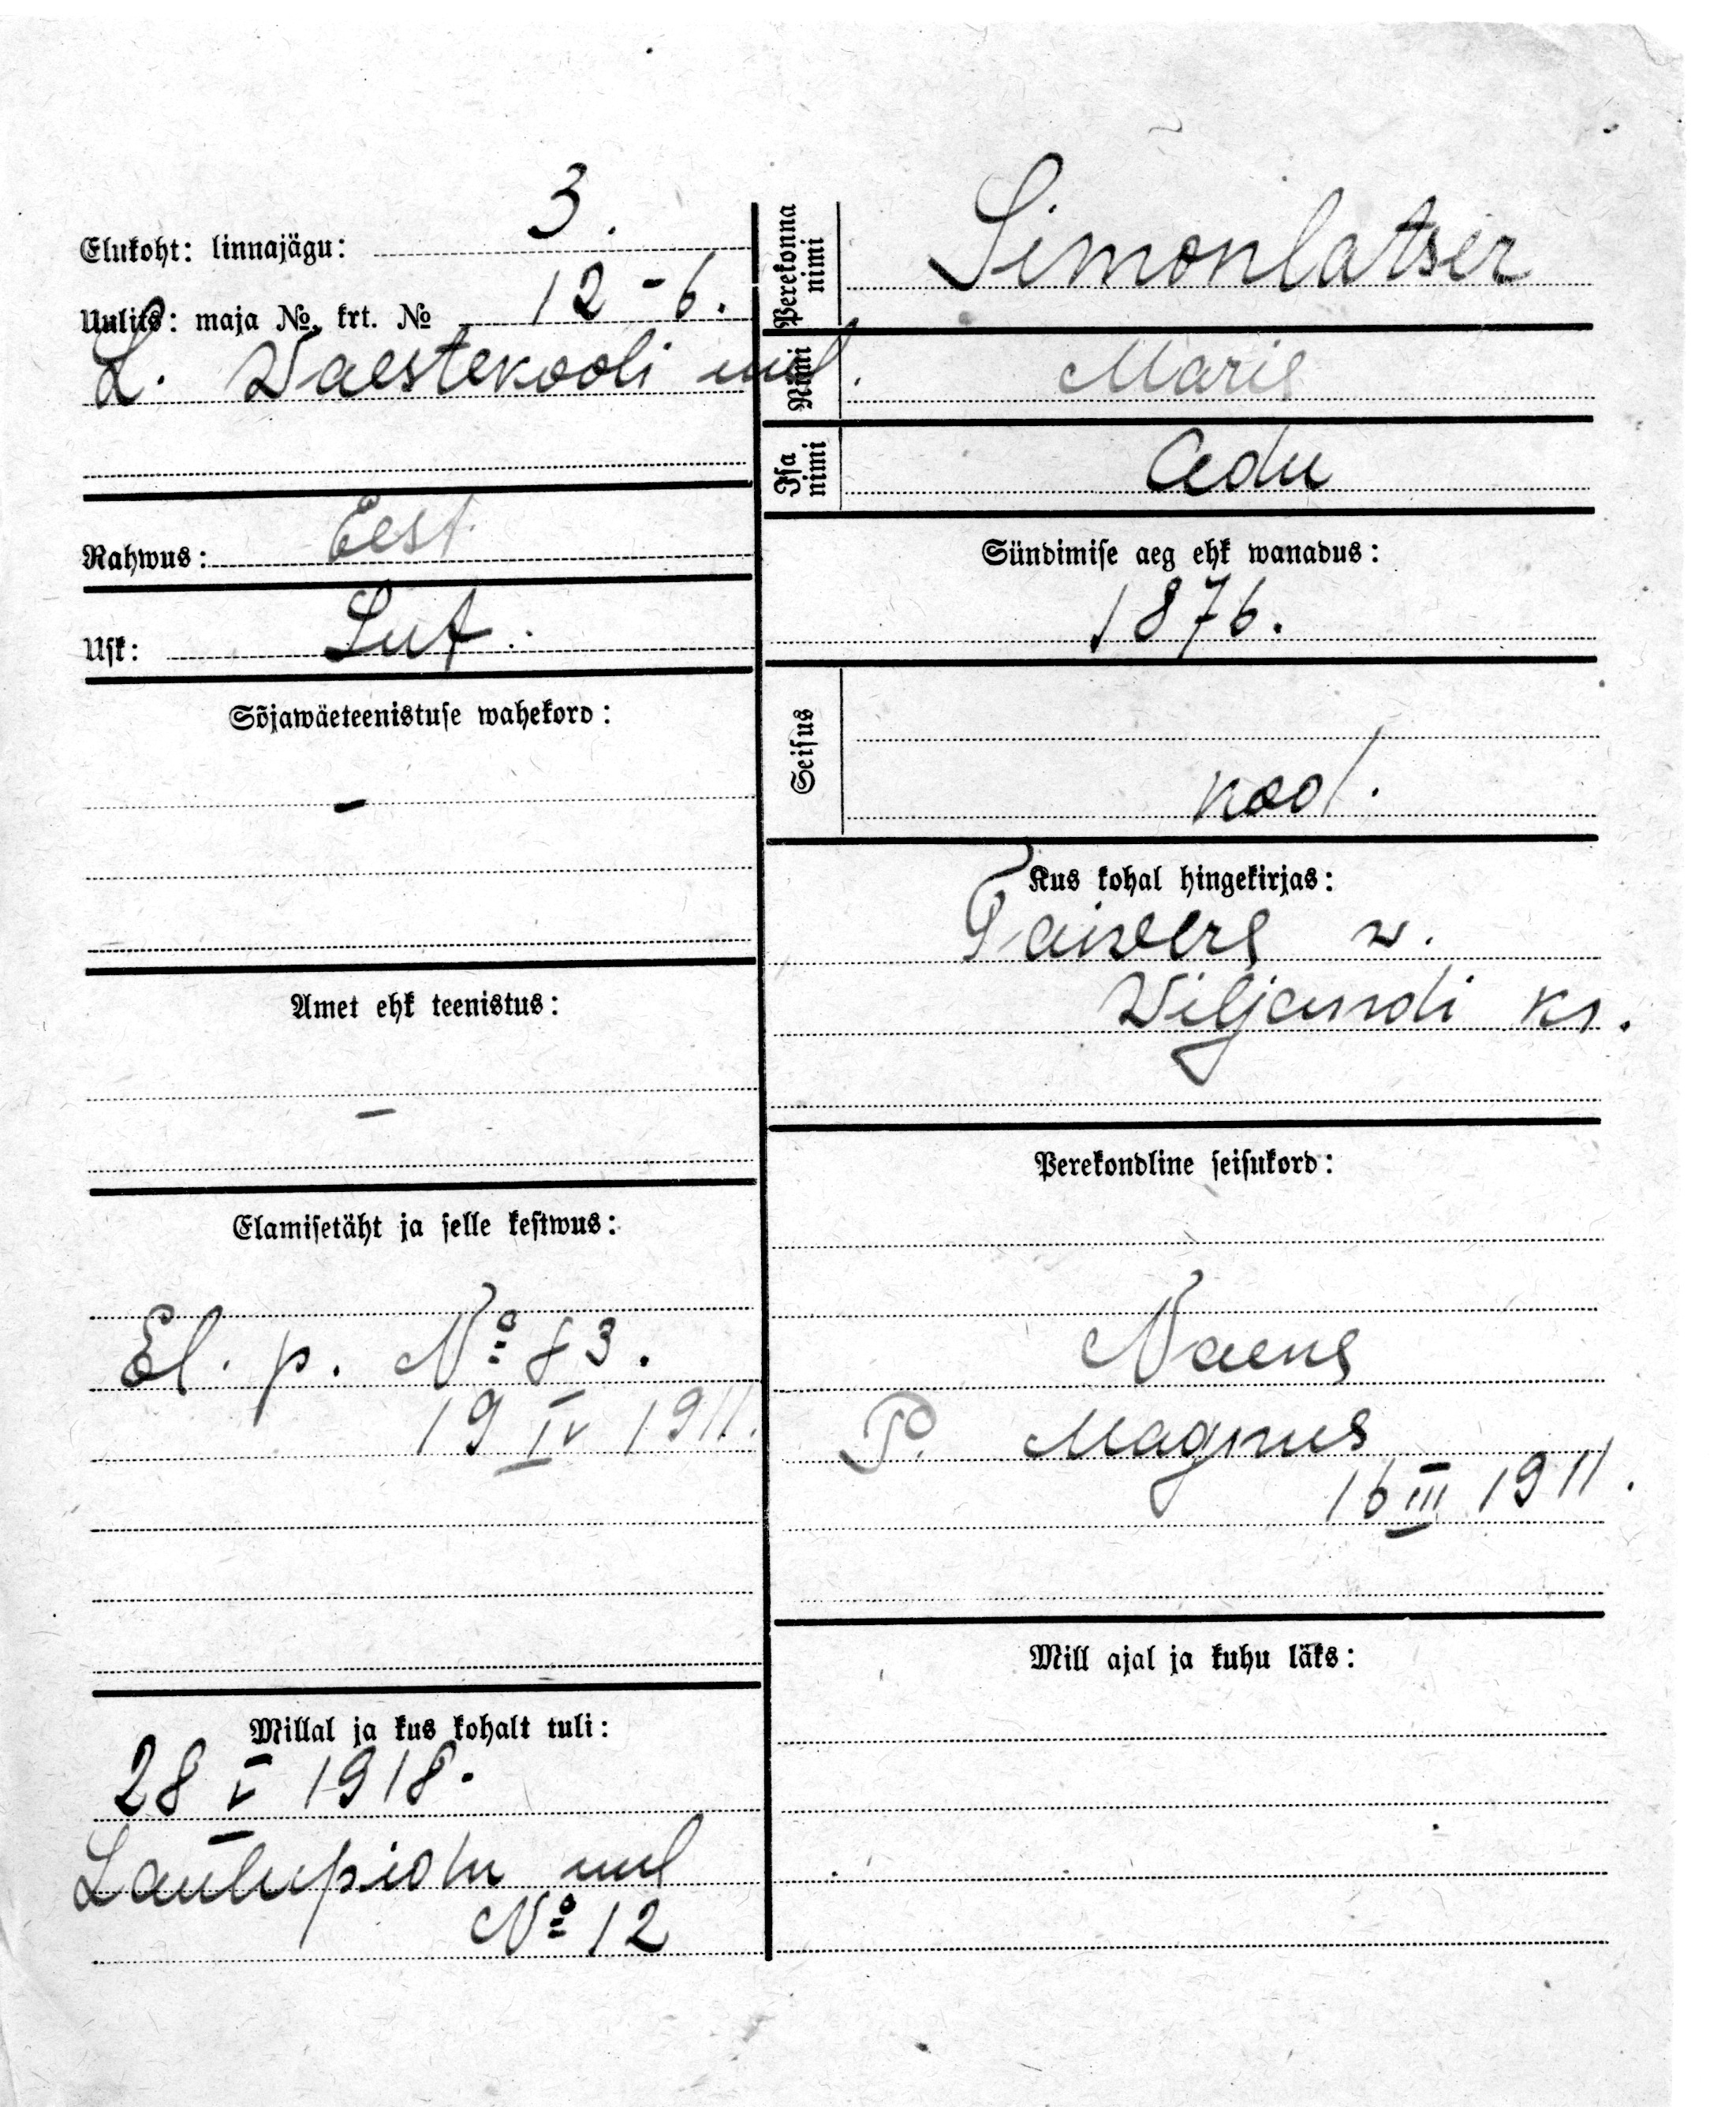 Elukoht: linnajägu: 3.
Uulits: maja №, krt. № 12-6.
L. Vaestekooli uul.
Rahwus: Eest.
Usk: Lut.
Sõjawäeteenistuse wahekord:
-
Amet ehk teenistus:
-
Elamisetäht ja selle kestwus:
El. p. № 83.
19 IV 1911.
Millal ja kus kohalt tuli:
28 V 1918.
Laulupidu uul
№ 12
Perekonna nimi Simonlatser
Nimi Marie
Isa nimi Adu
Sündimise aeg ehk wanadus:
1876.
Seisus
kool.
Kus kohal hingekirjas:
Taivere w.
Viljandi kr.
Perekondline seisukord:
Naene
P. Magnus
16 III 1911.
Mill ajal ja kuhu läks: